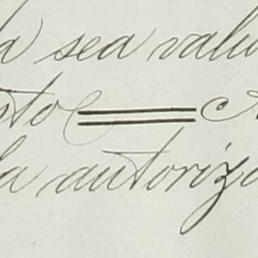 a sea valu
sto = 
la autoriza